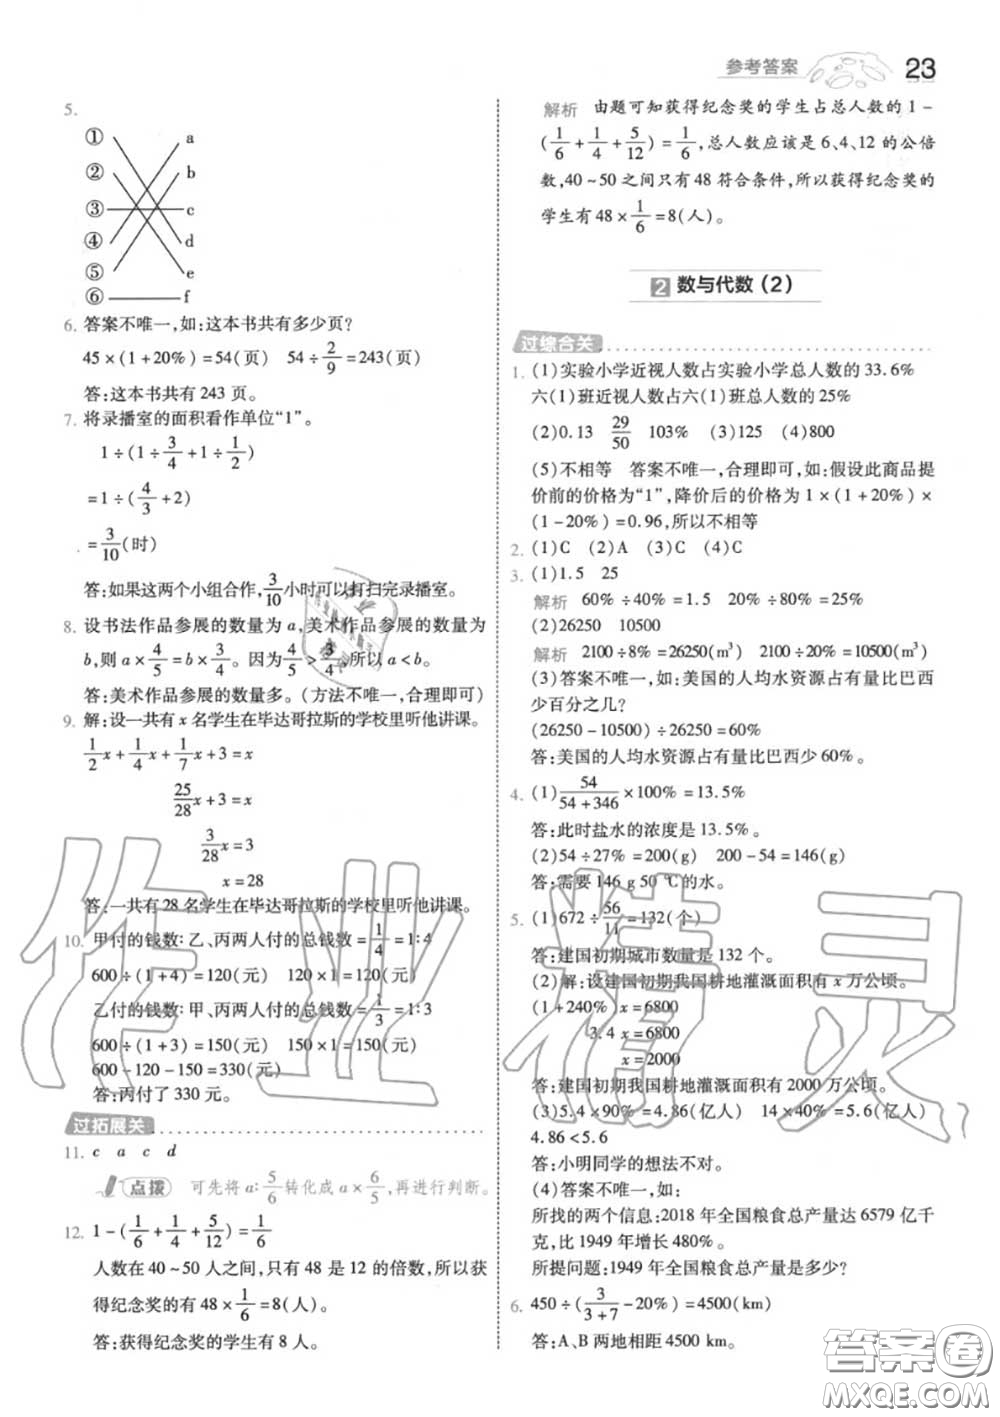 参考答案 23
5.
① a
② b
③ c
④ d
⑤ e
⑥ f
6. 答案不唯一,如:这本书共有多少页?
45×(1+20%)=54(页) 54÷2/9=243(页)
答:这本书共有 243 页。
7. 将录播室的面积看作单位“1”。
1÷(1÷3/4+1÷1/2)
=1÷(4/3+2)
=3/10(时)
答:如果这两个小组合作,3/10小时可以打扫完录播室。
8. 设书法作品参展的数量为 a,美术作品参展的数量为
b,则 a×4/5=b×3/4。因为4/5>3/4,所以 a<b。
答:美术作品参展的数量多。(方法不唯一,合理即可)
9. 解:设一共有 x 名学生在毕达哥拉斯的学校里听他讲课。
1/2x+1/4x+1/7x+3=x
25/28x+3=x
3/28x=3
x=28
答:一共有 28 名学生在毕达哥拉斯的学校里听他讲课。
10. 甲付的钱数:乙、丙两人付的总钱数=1/4=1:4
600÷(1+4)=120(元) 120×1=120(元)
乙付的钱数:甲、丙两人付的总钱数=1/3=1:3
600÷(1+3)=150(元) 150×1=150(元)
600-120-150=330(元)
答:丙付了 330 元。
过拓展关
11. c a c d
点拨 可先将 a:5/6转化成 a×6/5,再进行判断。
12. 1-(1/6+1/4+5/12)=1/6
人数在 40~50 人之间,只有 48 是 12 的倍数,所以获
得纪念奖的有 48×1/6=8(人)。
答:获得纪念奖的学生有 8 人。
解析 由题可知获得纪念奖的学生占总人数的 1-
(1/6+1/4+5/12)=1/6,总人数应该是 6、4、12 的公倍
数,40~50 之间只有 48 符合条件,所以获得纪念奖的
学生有 48×1/6=8(人)。
2 数与代数(2)
过综合关
1. (1)实验小学近视人数占实验小学总人数的 33.6%
六(1)班近视人数占六(1)班总人数的 25%
(2)0.13 29/50 103% (3)125 (4)800
(5)不相等 答案不唯一,合理即可,如:假设此商品提
价前的价格为“1”,降价后的价格为 1×(1+20%)×
(1-20%)=0.96,所以不相等
2. (1)C (2)A (3)C (4)C
3. (1)1.5 25
解析 60%÷40%=1.5 20%÷80%=25%
(2)26250 10500
解析 2100÷8%=26250(m³) 2100÷20%=10500(m³)
(3)答案不唯一,如:美国的人均水资源占有量比巴西
少百分之几?
(26250-10500)÷26250=60%
答:美国的人均水资源占有量比巴西少 60%。
4. (1)54/(54+346)×100%=13.5%
答:此时盐水的浓度是 13.5%。
(2)54÷27%=200(g) 200-54=146(g)
答:需要 146 g 50 ℃的水。
5. (1)672÷56/11=132(个)
答:建国初期城市数量是 132 个。
(2)解:设建国初期我国耕地灌溉面积有 x 万公顷。
(1+240%)x=6800
3.4x=6800
x=2000
答:建国初期我国耕地灌溉面积有 2000 万公顷。
(3)5.4×90%=4.86(亿人) 14×40%=5.6(亿人)
4.86<5.6
答:小明同学的想法不对。
(4)答案不唯一,如:
所找的两个信息:2018 年全国粮食总产量达 6579 亿千
克,比 1949 年增长 480%。
所提问题:1949 年全国粮食总产量是多少?
6. 450÷(3/(3+7)-20%)=4500(km)
答:A、B 两地相距 4500 km。
作业精灵
答案圈
MXQE.COM